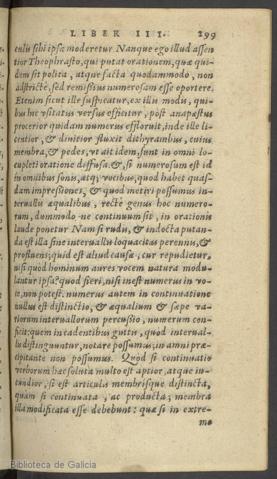 LIBER III. 299
culu sibi ipsæ moderetur Nanque ego illud assen
tior Theophrasto, qui putat orationem, quæ qui-
dem sit polita, atque facta quodammodo, non
astrictè, sed remissius numerosam esse oportere.
Etenim sicut ille suspicatur, ex illis modis, qui-
bus hic vsitatus versus efficitur, pòst anapæstus
procerior quidam numerus effloruit, inde ille li-
centior, & diuitior fluxit dithyrambus, cuius
membra, & pedes, vt ait idem, sunt in omni lo-
cupleti oratione diffusa. &, si numerosum est id
in omnibus sonis, atq; vocibus, quod habet quas-
dam impressiones, & quod metiri possumus in-
teruallis æqualibus, rectè genus hoc numero-
rum, dummodo ne continuum sit, in orationis
laude ponetur Nam si rudis, & indocta putan-
da est illa sine interuallis loquacitas perennis, &
profluens; quid est aliud causæ, cur repudietur,
nisi quod hominum aures vocem natura modu-
lantur ipsæ? quod fieri, nisi inest numerus in vo-
ce, non potest. numerus autem in continuatione
nullus est distinctio, & æqualium & sæpe va-
riorum interuallorum percussio, numerum con-
ficit: quem in cadentibus guttis, quod interual-
lis distinguuntur, notare possumus, in amni præ-
cipitante non possumus. Quod si continuatio
verborum hæc soluta multo est aptior, atque iu-
cundior, si est articulis membrisque distincta,
quam si continuata, ac producta; membra
illa modificata esse debebunt: quæ si in extre-
mo
Biblioteca de Galicia